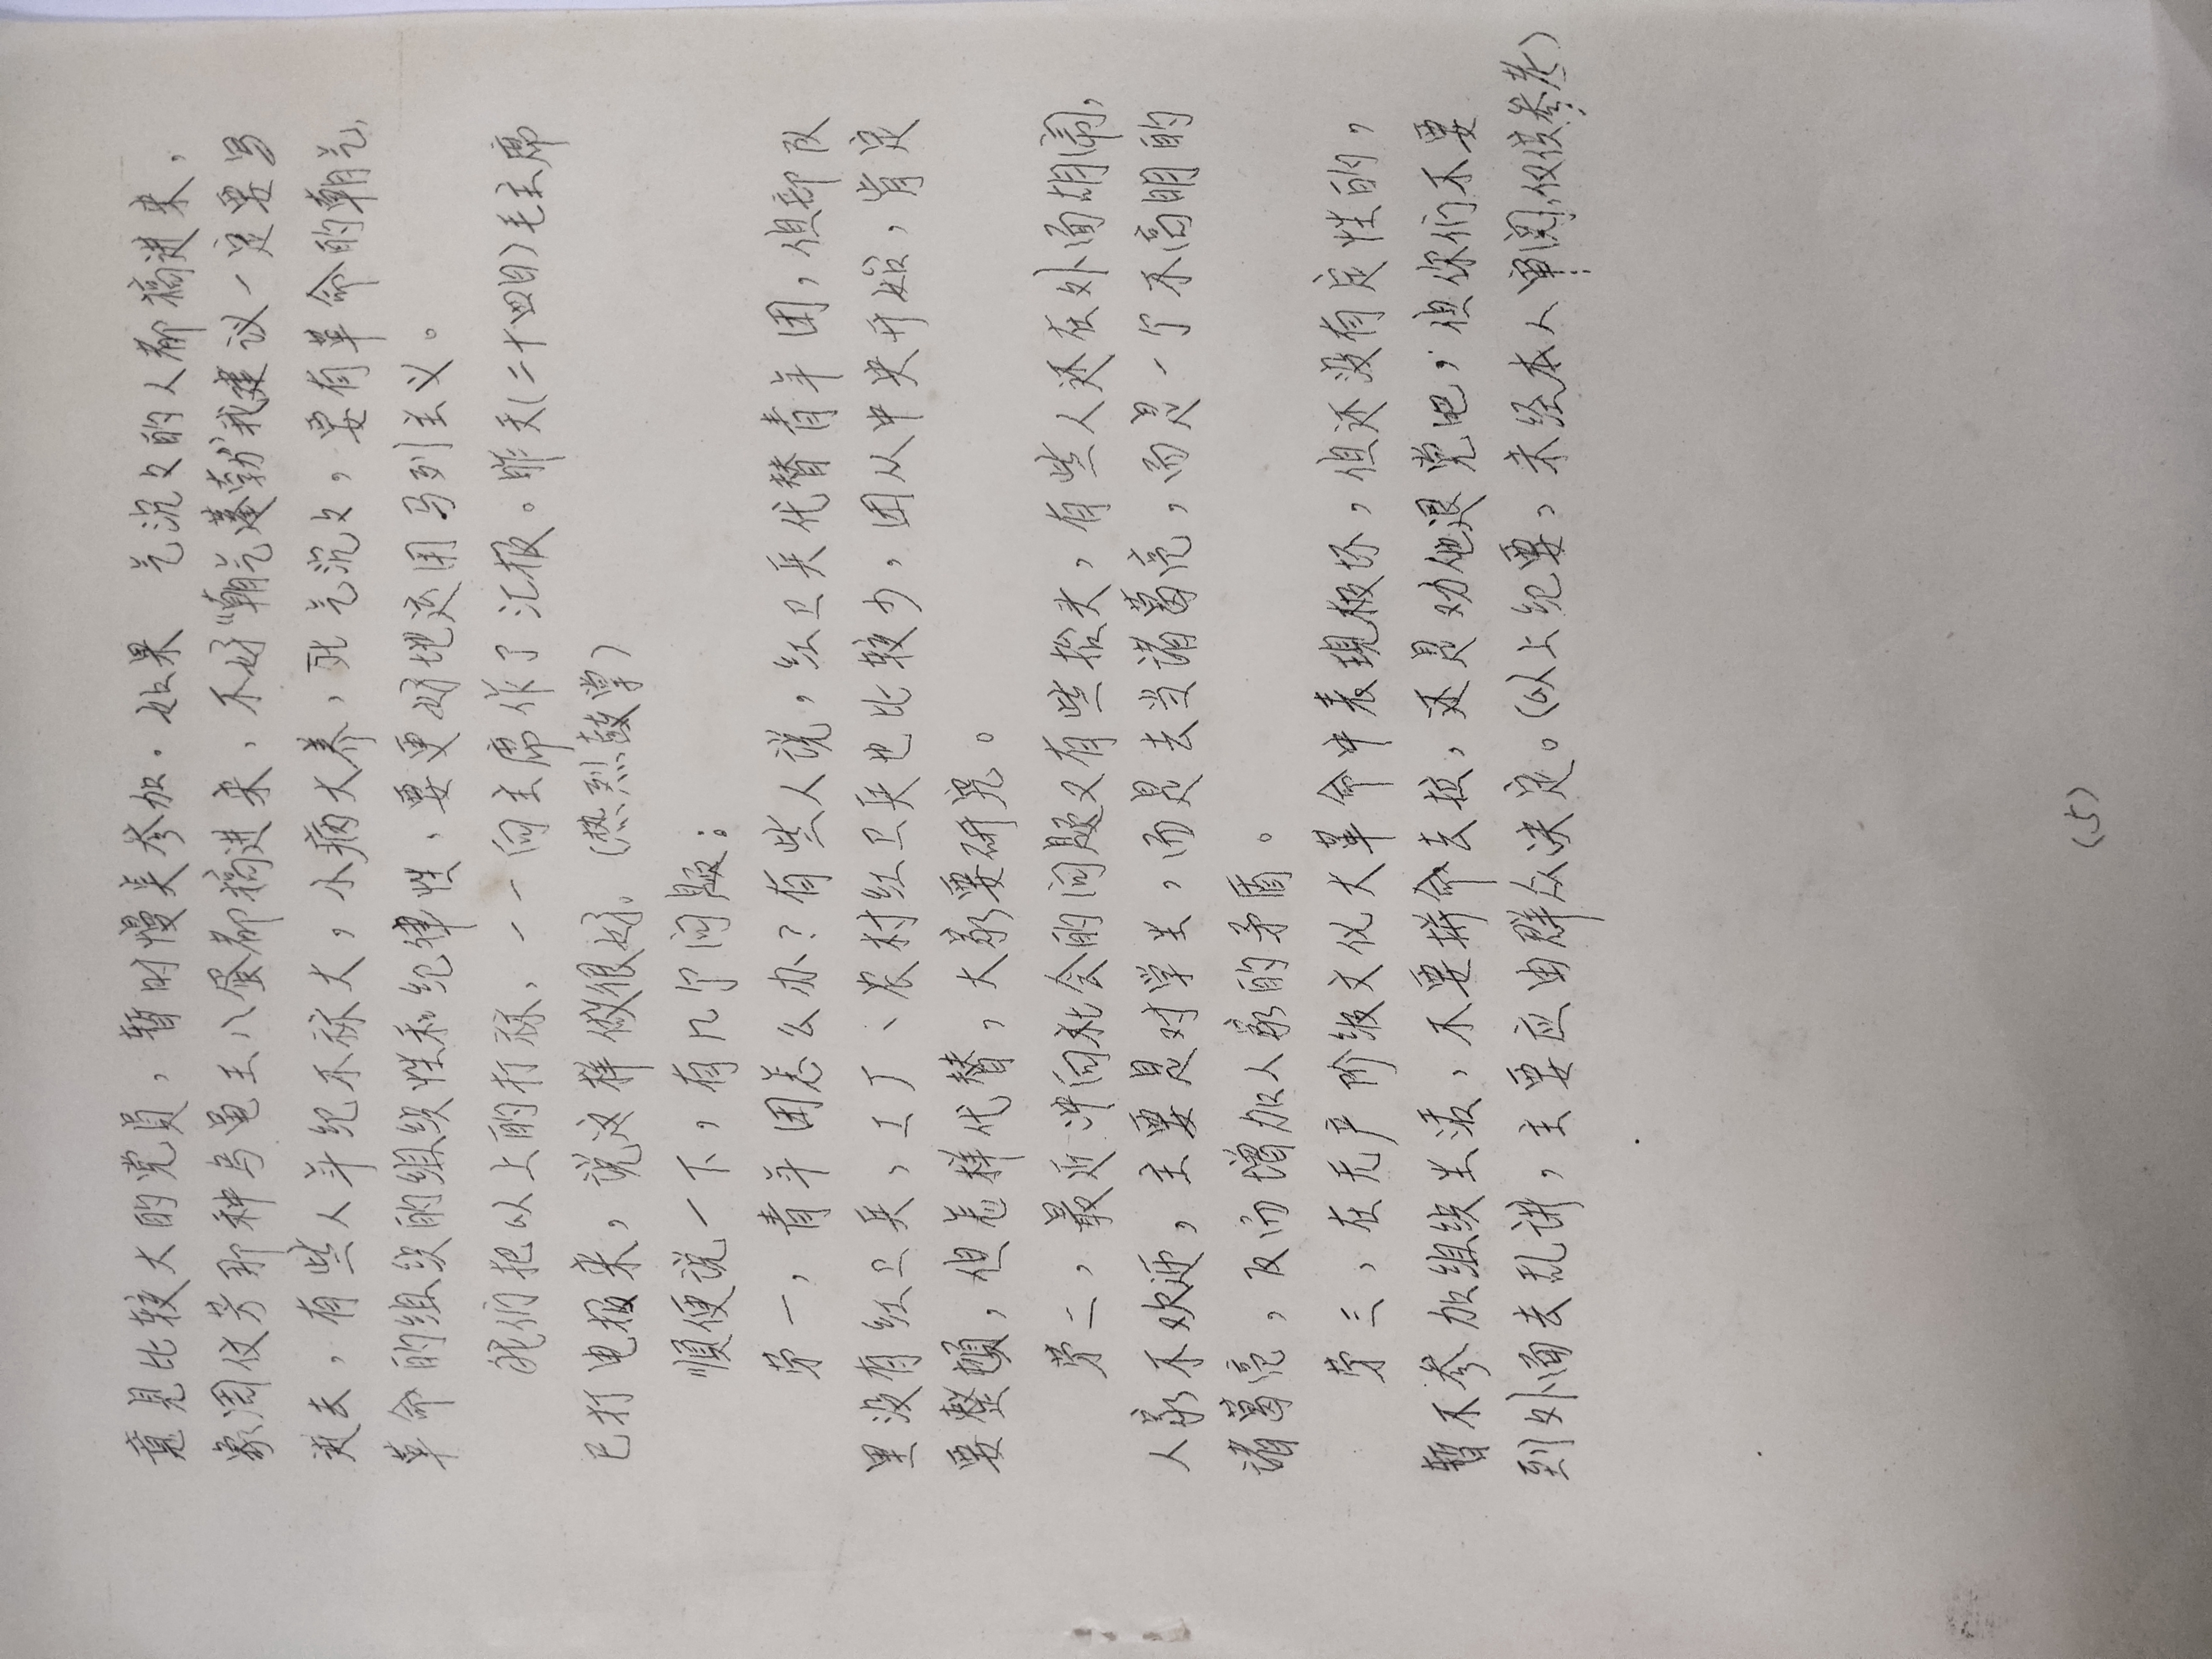 意见比较大的党员，暂时慢矣参加。如果　气沉々的人都搞进来，
象周仪芳那种乌龟王八蛋都搞进来，不好“朝气蓬勃”我建议一定要写
进去，有些人年纪不祘大，小病大养，死气沉々，要有革命的朝气，
革命的组织的组织性和纪律性，要更好地运用马列主义。
我们把以上的打祘，一一向主席作了汇报。昨天（二十四日）毛主席
已打电报来，说这样做很好。（热烈鼓掌）
顺便说一下，有几个问题：
第一，青年团怎么办？有些人说，红卫兵代替青年团，但部队
里没有红卫兵，工厂、农村红卫兵也比较少，团从中央开始，肯定
要整顿，但怎样代替，大家要研究。
第二，最近冲向社会的问题又有些抬头，有些人还在外面胡闹，
人家不欢迎，主要是对学生，而是去当诸葛亮，而是一个不高明的
诸葛亮，反而增加人家的矛盾。
第三，在无产阶级文化大革命中表现极坏，但还没有定性的，
暂不参加组织生活，不要拼命去拉，还是劝他退党吧，但你们不要
到外面去乱讲，主要应由群众决定。（以上纪要，未经本人审阅，仅供参考）
（5）